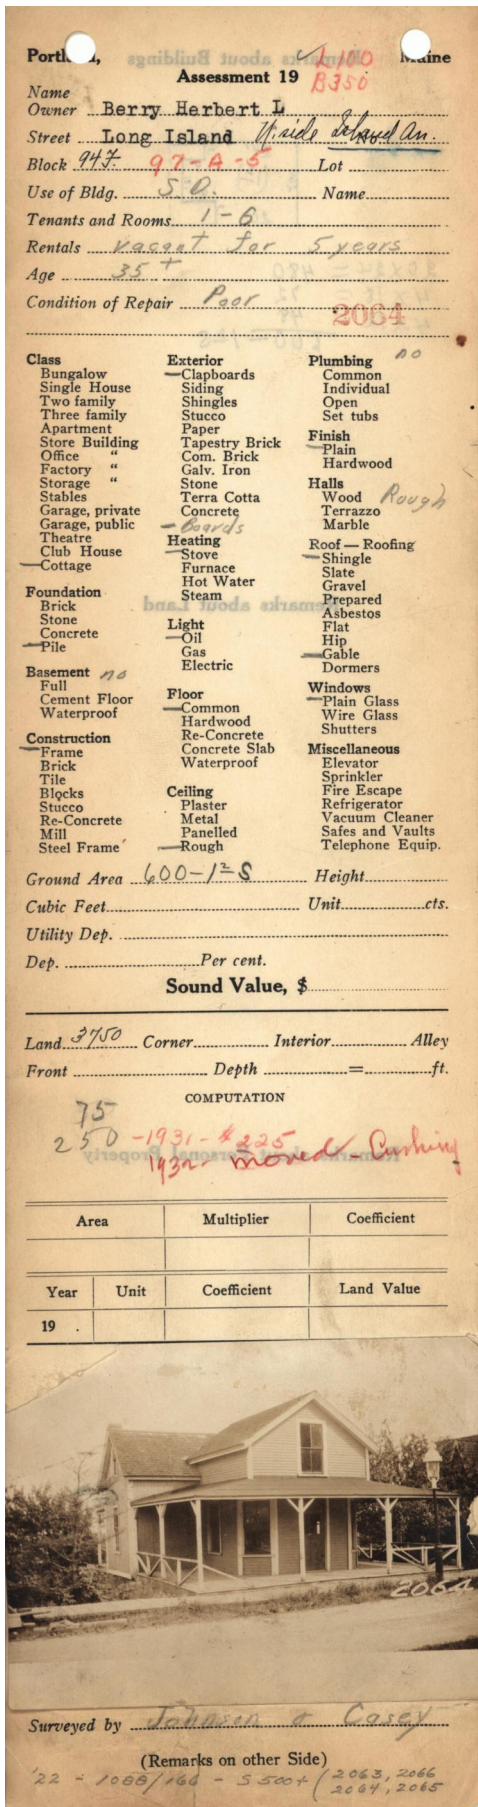 Portland, Maine
L100
Assessment 19
B350
Name
Owner Berry Herbert L
Street Long Island N. side Island Av.
Block 94F. 97-A-5 Lot
Use of Bldg. S.D. Name
Tenants and Rooms 1-6
Rentals vacant for 5 years
Age 35+
Condition of Repair Poor
2064
Class
Bungalow
Single House
Two family
Three family
Apartment
Store Building
Office "
Factory "
Storage "
Stables
Garage, private
Garage, public
Theatre
Club House
Cottage
Foundation
Brick
Stone
Concrete
Pile
Basement no
Full
Cement Floor
Waterproof
Construction
Frame
Brick
Tile
Blocks
Stucco
Re-Concrete
Mill
Steel Frame
Exterior
Clapboards
Siding
Shingles
Stucco
Paper
Tapestry Brick
Com. Brick
Galv. Iron
Stone
Terra Cotta
Concrete
- Boards
Heating
Stove
Furnace
Hot Water
Steam
Light
Oil
Gas
Electric
Floor
Common
Hardwood
Re-Concrete
Concrete Slab
Waterproof
Ceiling
Plaster
Metal
Panelled
Rough
Plumbing no
Common
Individual
Open
Set tubs
Finish
Plain
Hardwood
Halls
Wood Rough
Terrazzo
Marble
Roof — Roofing
Shingle
Slate
Gravel
Prepared
Asbestos
Flat
Hip
Gable
Dormers
Windows
Plain Glass
Wire Glass
Shutters
Miscellaneous
Elevator
Sprinkler
Fire Escape
Refrigerator
Vacuum Cleaner
Safes and Vaults
Telephone Equip.
Ground Area 600-1 2 S Height
Cubic Feet Unit cts.
Utility Dep.
Dep. Per cent.
Sound Value, $
Land 3750 Corner Interior Alley
Front Depth = ft.
COMPUTATION
75
250 -1931- $225
1932- moved - Cushing
Area Multiplier Coefficient
Year Unit Coefficient Land Value
19 .
2064
Surveyed by Johnson & Casey
(Remarks on other Side)
'22 - 1088/166 - S 500+ (2063, 2066
2064, 2065